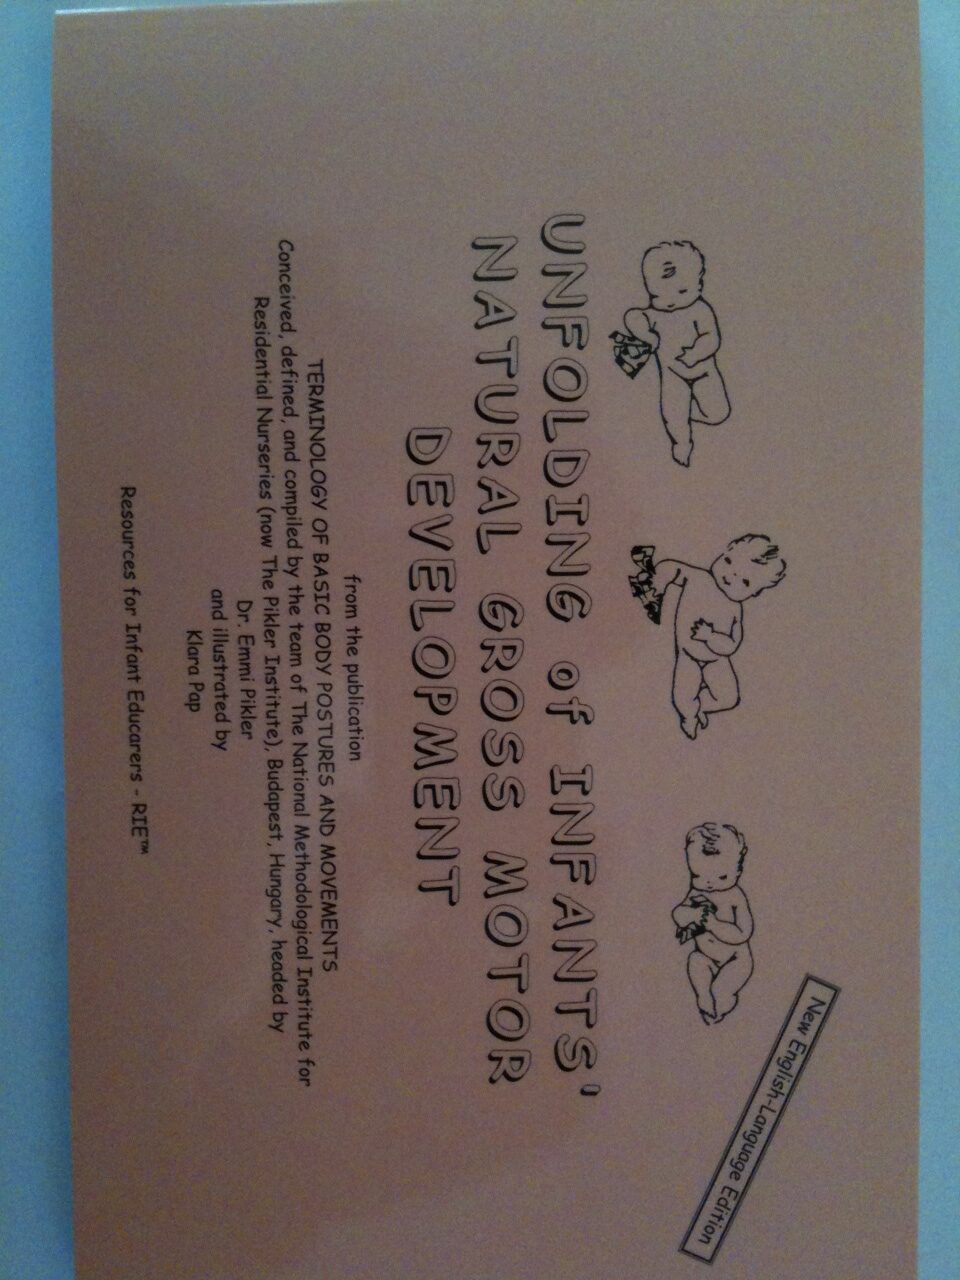 New English-Language Edition
UNFOLDING of INFANTS'
NATURAL GROSS MOTOR
DEVELOPMENT
from the publication
TERMINOLOGY OF BASIC BODY POSTURES AND MOVEMENTS
Conceived, defined, and compiled by the team of The National Methodological Institute for
Residential Nurseries (now The Pikler Institute), Budapest, Hungary, headed by
Dr. Emmi Pikler
and illustrated by
Klara Pap
Resources for Infant Educarers - RIE™